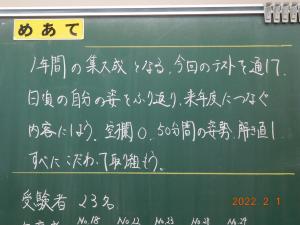 めあて
1年間の集大成となる、今回のテストを通して、
日頃の自分の姿をふり返り、来年度につなぐ
内容にしよう。空欄0、50分間の姿勢、解き直し
すべにこだわって取り組もう。
受験者 23名
No.18 No.22 No.23 No.28 No.29
2022 2 1